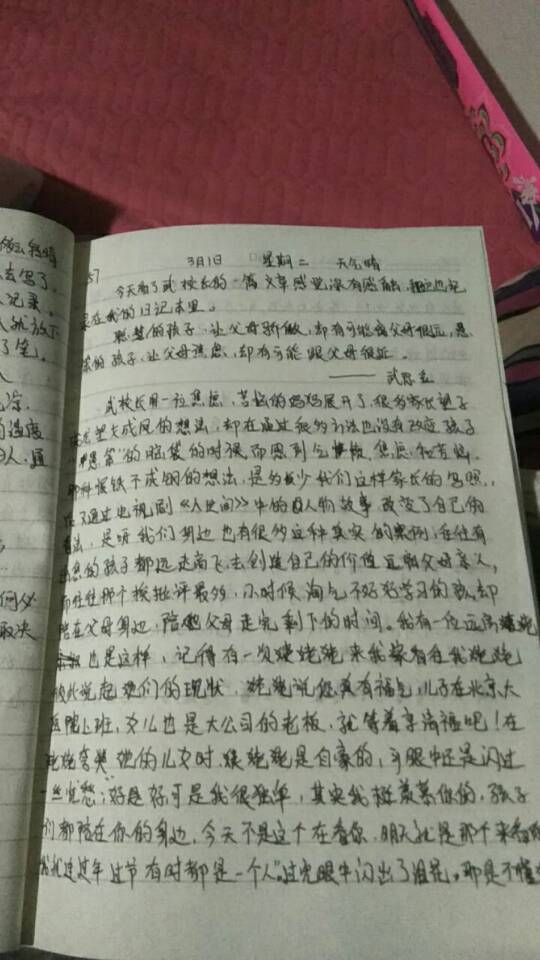 么去写了。
记录。
57
3月1日 星期二 天气晴
今天看了武校长的一篇文章感觉深有感触,
录在我的日记本里。
聪慧的孩子,让父母骄傲,却有可能离父母很远,愚
笨的孩子,让父母焦虑,却有可能跟父母很近。
——武
武校长用一位焦虑,苦恼的妈妈展开了,很多家长望子
成龙望女成凤的想法,却在通过很多方法也没有改变孩子
的脑袋的时候而感到气愤,焦虑和苦恼。
那种恨铁不成钢的想法,是多少我们这样家长的写照,
后又通过电视剧《人世间》中的人物故事改变了自己的
看法,是呀我们身边也有很多这种真实的案例,往往有
出息的孩子都远走高飞去创造自己的价值远离父母亲人,
而往往那个挨批评最多,小时候淘气不好好学习的孩却
陪在父母身边,陪父母走完剩下的时间。我有一位远房姨姥姥
也是这样,记得有一次姨姥姥来我家看在我姥姥
彼此说起她们的现状,姥姥说您真有福气,儿子在北京大
医院上班,女儿也是大公司的老板,就等着享清福吧!在
姥姥夸奖她的儿女时,姨姥姥是自豪的,可眼中还是闪过
一丝忧愁;好是好可是我很孤单,其实我挺羡慕你的,孩子
们都陪在你的身边,今天不是这个在看你,明天就是那个来看你
我就连过年过节有时都是一个人"。说完眼中闪出了泪花。那是不